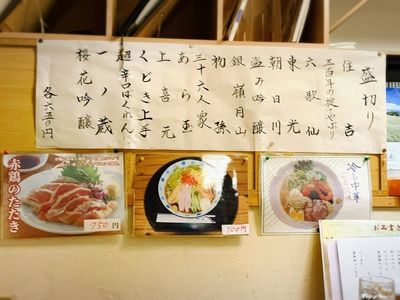 盛切り
住吉
三百年の掟やぶり
六歌仙
東光
朝日川
盗み吟醸
銀嶺月山
初孫
三十六人衆
あら玉
上喜元
くどき上手
超辛口ばくれん
一ノ蔵
桜花吟醸
各六五〇円
赤鶏のたたき
750円
冷し中華
お品書き